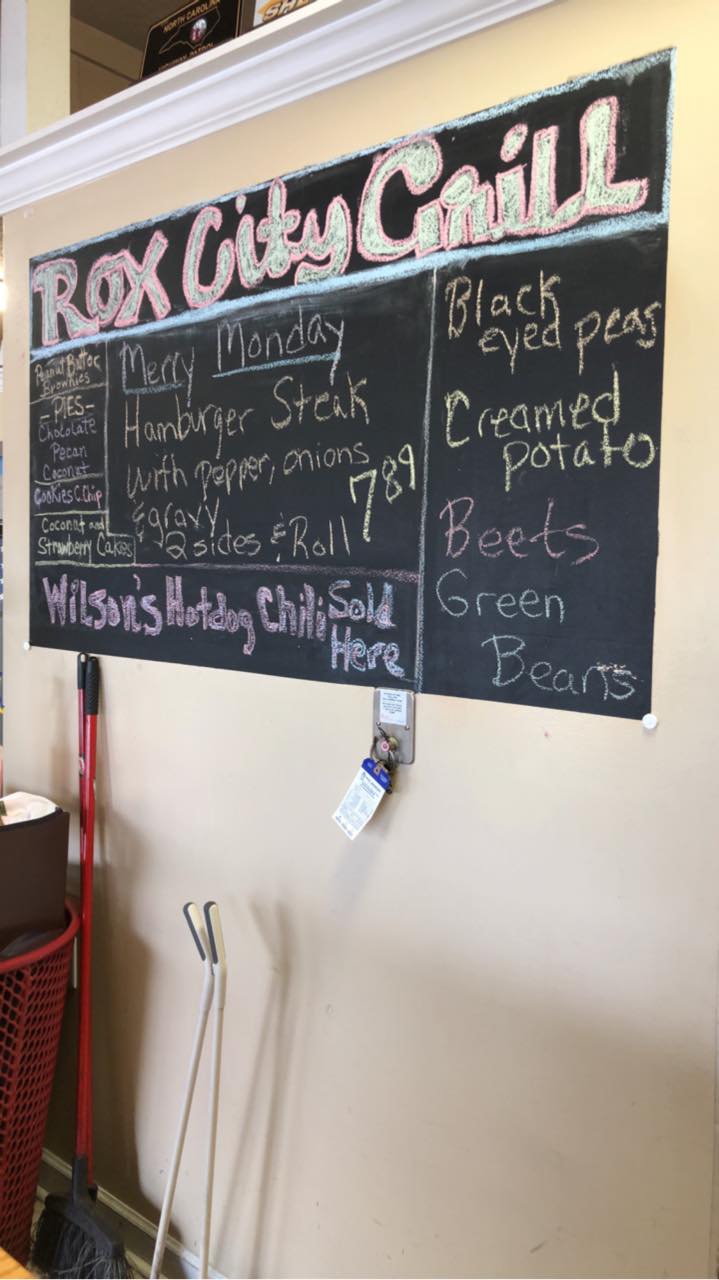 NORTH CAROLINA
HIGHWAY PATROL
Rox City Grill
Peanut Butter
Brownies
-PIES-
Chocolate
Pecan
Coconut
Cookies C.Chip
Coconut and
Strawberry Cakes
Merry Monday
Hamburger Steak
with pepper, onions
& gravy
7 89
2 sides & Roll
Wilson's Hotdog Chili Sold
Here
Black
eyed peas
Creamed
potato
Beets
Green
Beans